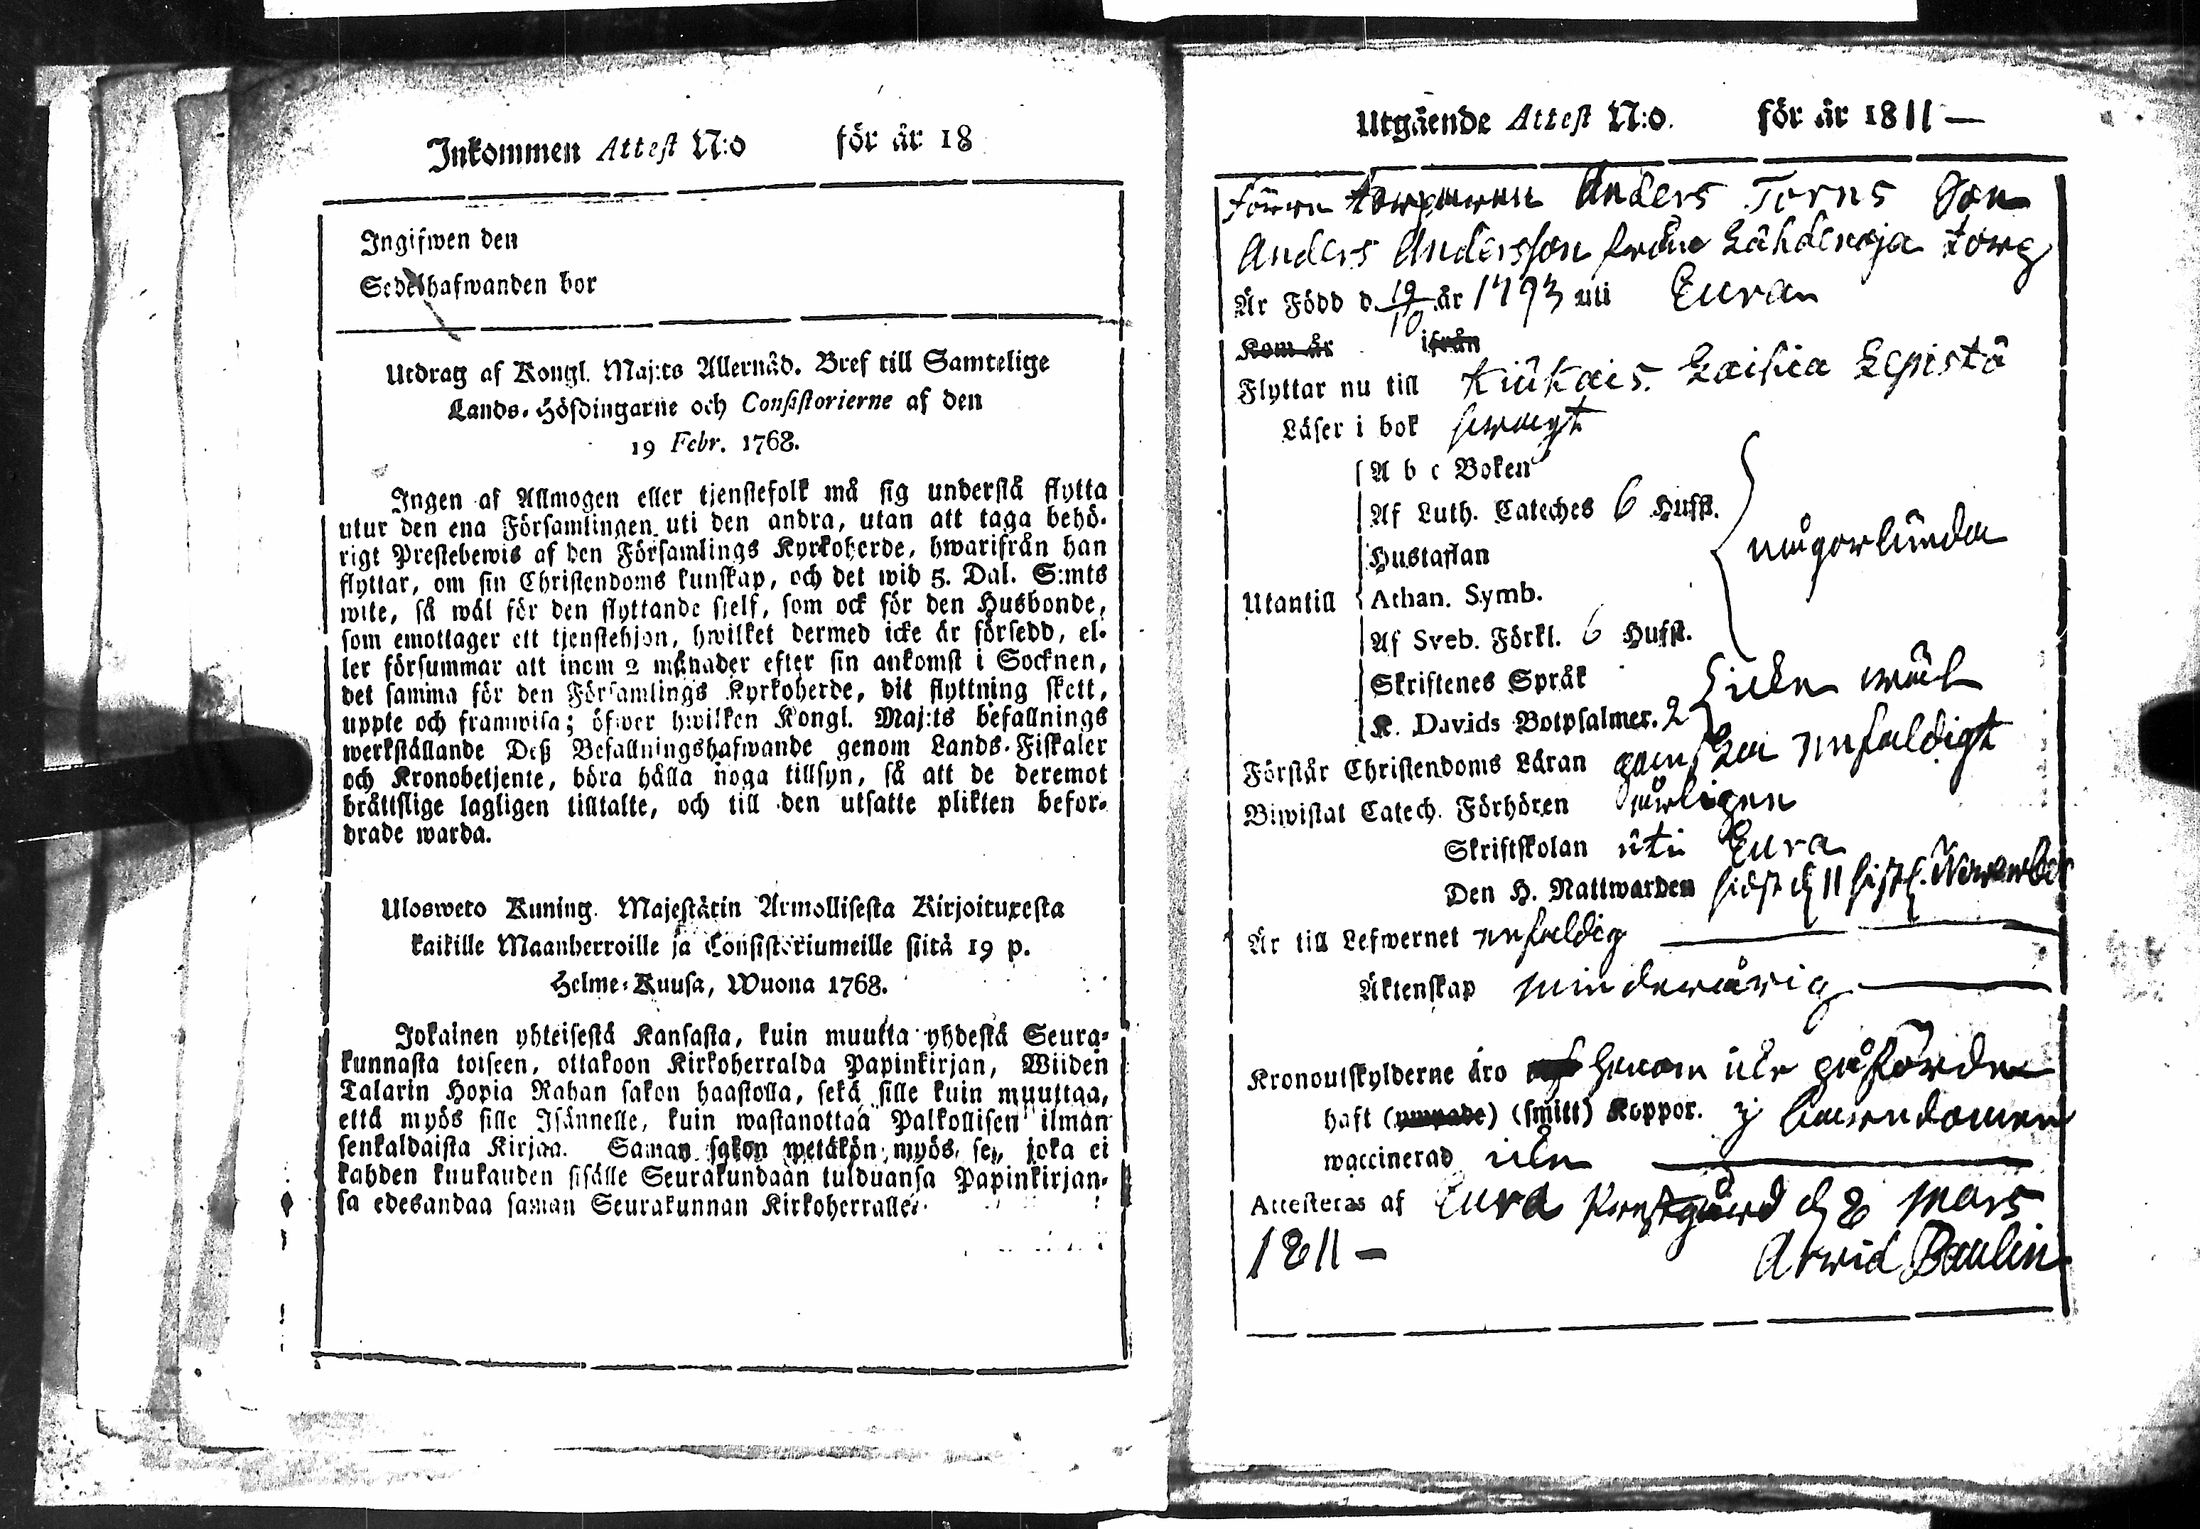 Inkommen Attest N:o för år 18
Ingifwen den
Sedelhafwanden bor
Utdrag af Kongl. Maj:ts Allernåd. Bref till Samtelige
Lands-Höfdingarne och Consistorierne af den
19 Febr. 1768.
Ingen af Allmogen eller tjenstefolk må sig understå flytta
utur den ena Församlingen uti den andra, utan att taga behö-
rigt Prestebewis af den Församlings Kyrkoherde, hwarifrån han
flyttar, om sin Christendoms kunskap, och det wid 5. Dal. S:mts
wite, så wäl för den flyttande sjelf, som ock för den Husbonde,
som emottager ett tjenstehjon, hwilket dermed icke är försedd, el-
ler försummar att inom 2 månader efter sin ankomst i Socknen,
det samma för den Församlings Kyrkoherde, dit flyttning skett,
uppte och framwisa; öfwer hwilken Kongl. Maj:ts befallnings
werkställande Deß Befallningshafwande genom Lands-Fiskaler
och Kronobetjente, böra hålla noga tillsyn, så att de deremot
bråttslige lagligen tilltalte, och till den utsatte plikten befor-
drade warda.
Ulosweto Kuning. Majestätin Armollisesta Kirjoituxesta
kaikille Maanherroille ja Consistoriumeille siitä 19 p.
Helme-Kuusa, Wuona 1768.
Jokainen yhteisestä Kansasta, kuin muutta yhdestä Seura-
kunnasta toiseen, ottakoon Kirkoherralda Papinkirjan, Wiiden
Talarin Hopia Rahan sakon haastolla, sekä sille kuin muuttaa,
että myös sille Isännelle, kuin wastanottaa Palkollisen ilman
senkaldaista Kirjaa. Saman sakon wetäkön myös, se, joka ei
kahden kuukauden sisälle Seurakundaan tulduansa Papinkirjan-
sa edesandaa saman Seurakunnan Kirkoherralle.
Utgående Attest N:o. för år 1811 —
Förre torparen Anders Torns Son
Anders Andersson från Lähdenoja torp
Är Född d. 19/10 år 1793 uti Eura
Kom år ifrån
Flyttar nu till Kiukais. Laihia Lepistö
Läser i bok swagt
A b c Boken
Af Luth. Cateches 6 Hufst.
Hustaflan
någorlunda
Utantill Athan. Symb.
Af Sveb. Förkl. 6 Hufst.
Skriftenes Språk
icke wäl
K. Davids Botpsalmer. 2
Förstår Christendoms Läran ganska enfaldigt
Biwistat Catech. Förhören årligen
Skriftskolan uti Eura
Den H. Nattwarden sidst d 11 sistl. November
Är till Lefwernet enfaldig
Äktenskap minderårig
Kronoutskylderne äro honom icke påförde
haft (ympade) (smitt) Koppor. i barndomen
waccinerad icke
Attesteras af Eura Prestgård d 8 Mars
1811 —
Arwid Paulin